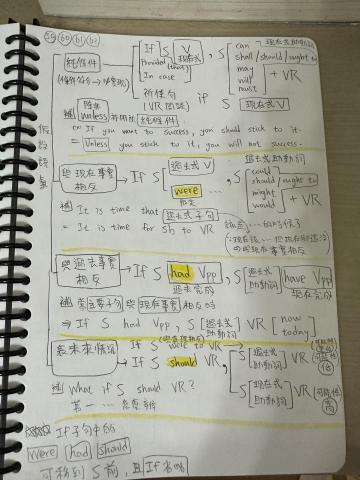 59 60 61 62
假設語氣
純條件 If S V 現在式, S can 現在式助動詞
Provided (that) shall / should / ought to + VR
(條件符合→會實現) In case may
will
must
祈使句
(VR 開頭) if S 現在式 V
補 除非 unless 只用於 純條件
ex: If you want to success, you should stick to it.
= Unless you stick to it, you will not success.
與現在事實相反 → If S 過去式 V 過去式助動詞
were ... , S could
should / ought to + VR
might
would
補 It is time that 過去式子句
= It is time for sb to VR
與過去事實相反 → If S had Vpp, S 過去式助動詞 have Vpp
過去完成 現在完成
補 當主要子句與現在事實相反時
⇒ If S had Vpp, S 過去式助動詞 VR now
today
表未來情況 If were to VR
→ If S should VR, S 過去式助動詞 VR 可能性低
S 現在式助動詞 VR 可能性高
補 What if S should VR?
萬一 ⋯ 怎麼辦
☆☆☆ If子句中的
were had should
可移到 S 前, 且 If 省略